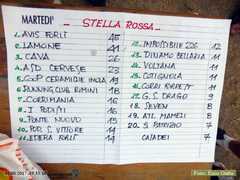 MARTEDI' - STELLA ROSSA -
1. AVIS FORLI' 45
2. LAMONE 41
3. CAVA 26
4. ASD CERVESE 23
5. G&P CERAMICHE IMOLA 19
6. RUNNING CLUB RIMINI 18
7. CORRIMANIA 16
8. I PODISTI 16
9. PONTE NUOVO 15
10. POD. S. VITTORE 14
11. EDERA FORLI' 14
12. IMPOSSIBILE 226 12
13. DINAMO BELLARIA 11
14. VOLTANA 11
15. COTIGNOLA 11
16. CORRI FORREST 11
17. G.S. DRAGO 11
18. SEVEN 8
19. ATL. MAMELI 8
20. S. PATRIZIO 7
7
Foto: Enzo